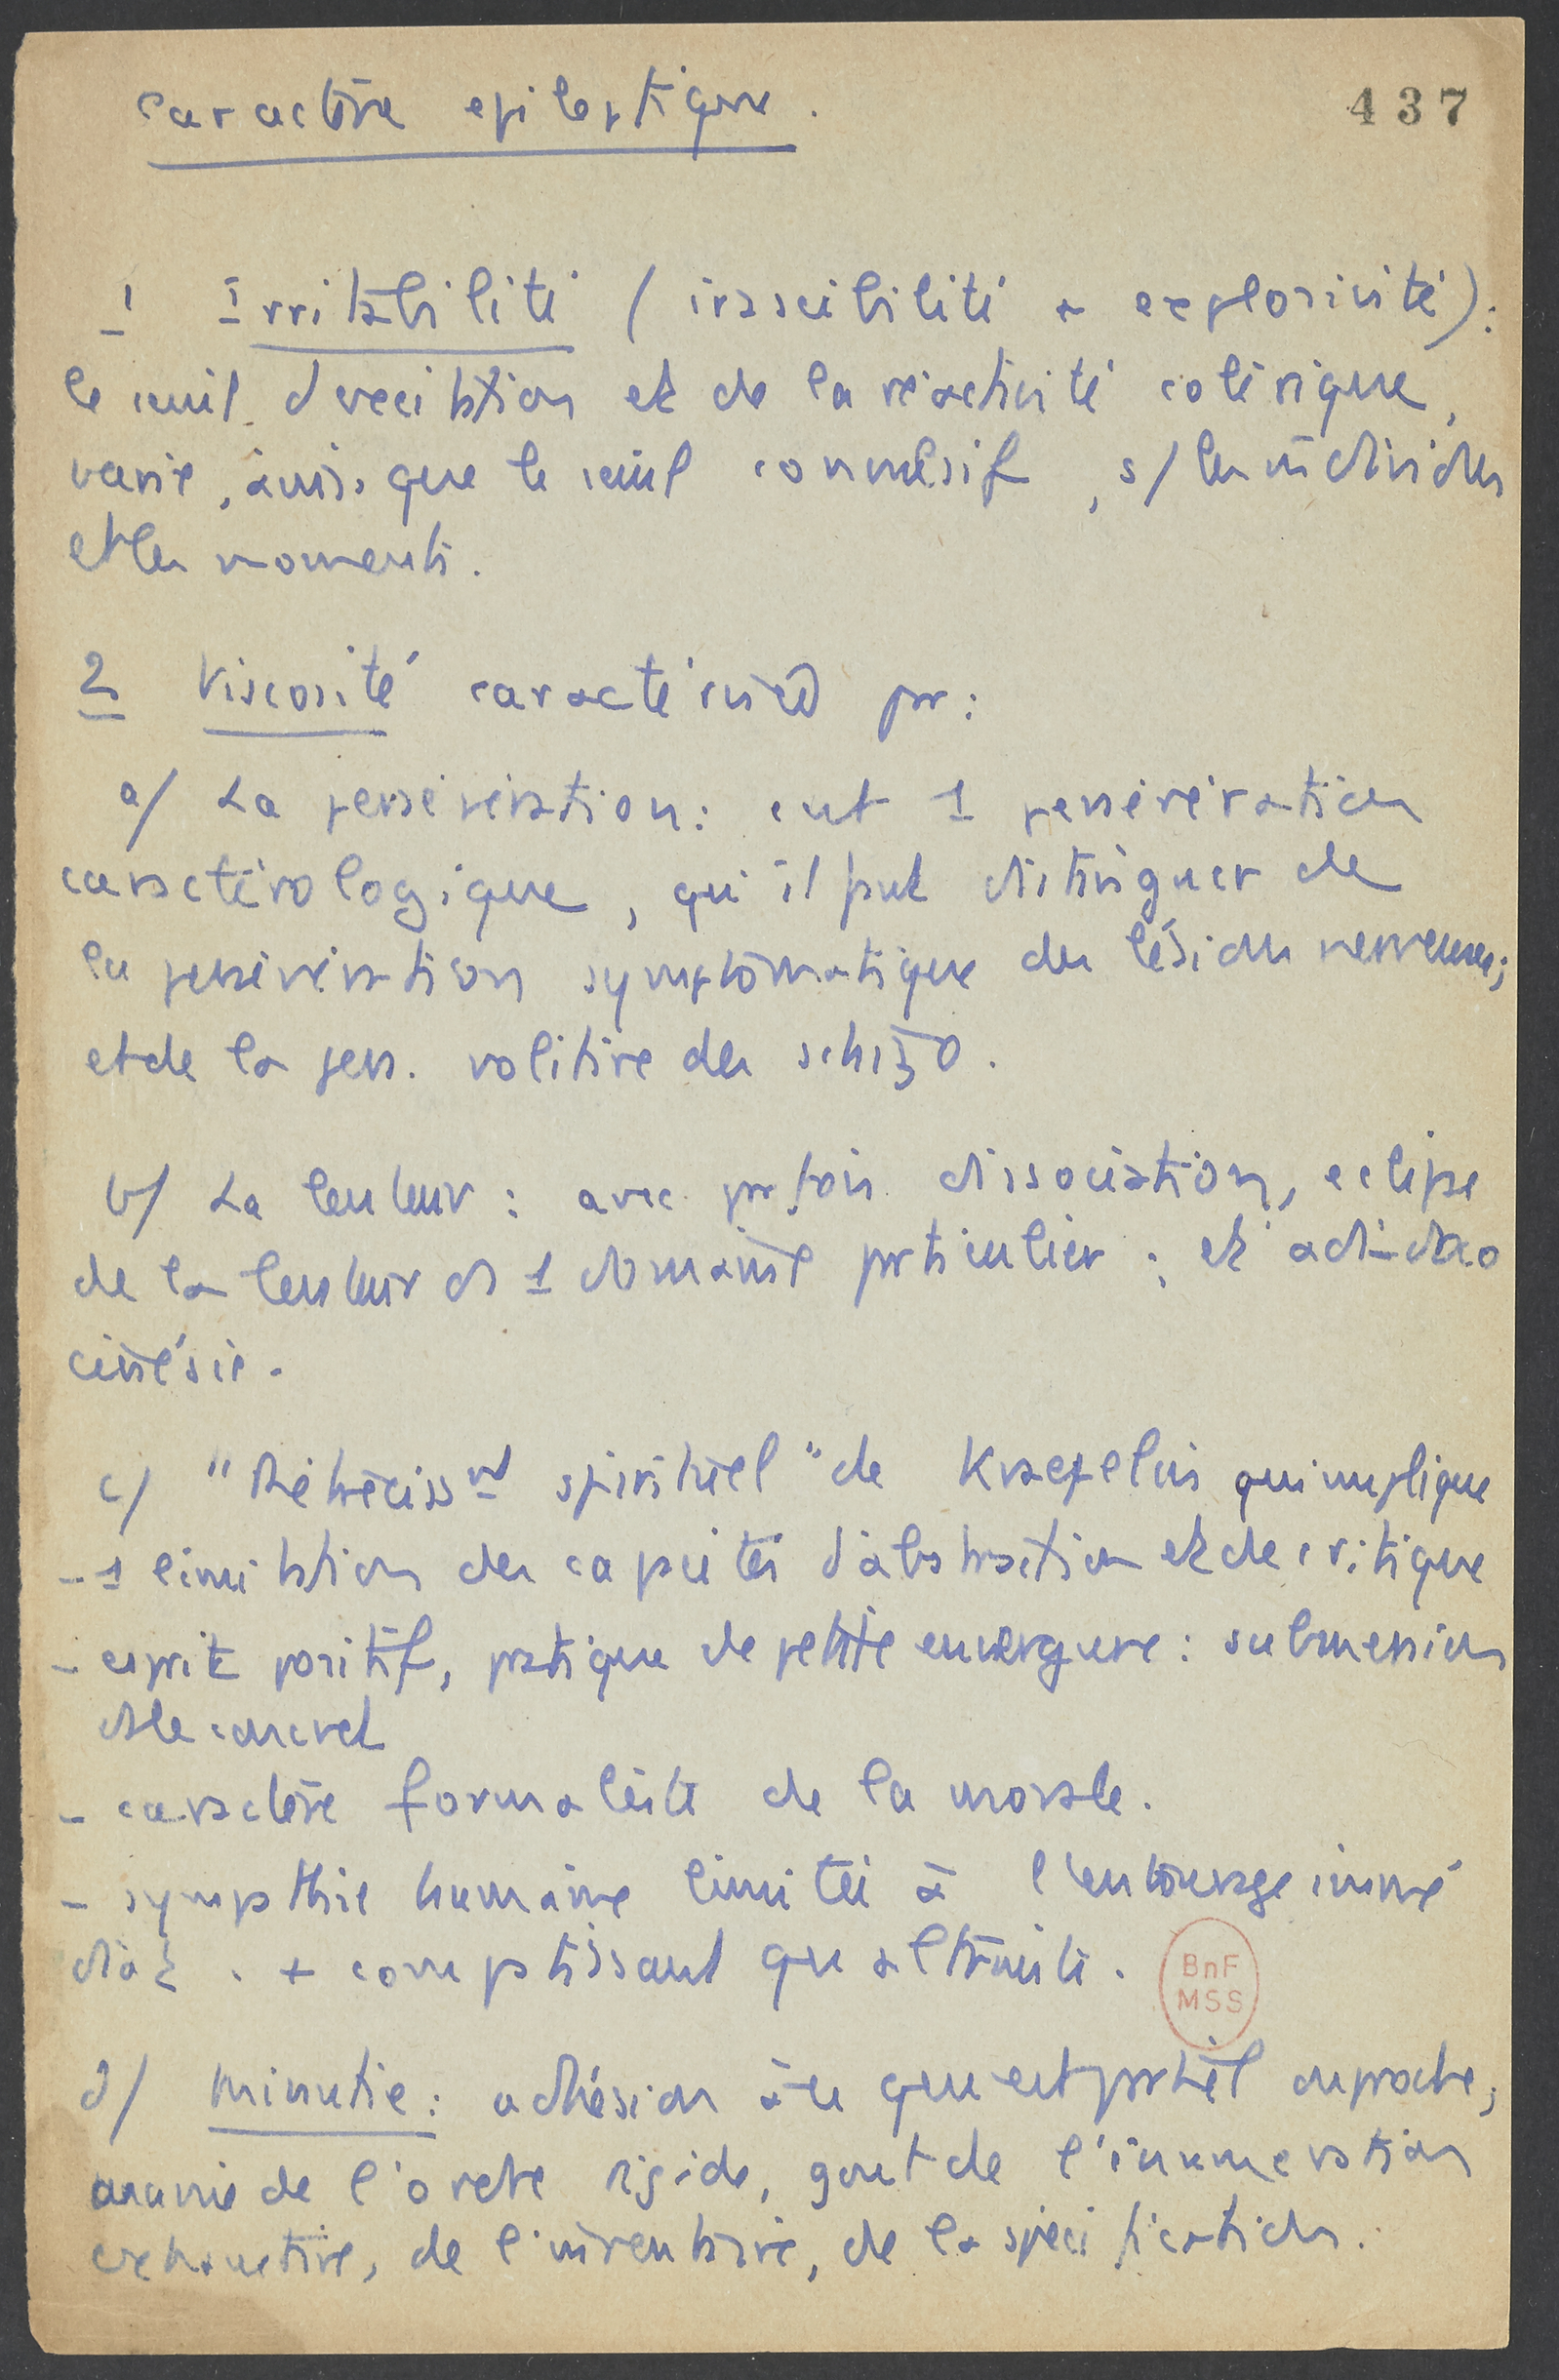 caractère epileptique.
437
1 Irritabilité (irascibilité & explosivité) :
le seuil d'excitation et de la réactivité colérique,
varie, ainsi que le seuil convulsif, s/ les individus
et les moments.
2 Viscosité caractérisée pr :
a/ La persévération : cest 1 persévération
caractérologique, qu'il faut distinguer de
la persévération symptomatique des lésions nerveuses ;
et de la pers. volitive des schizo.
b/ La lenteur : avec prfois dissociation, eclipse
de la lenteur ds 1 domaine prticulier ; et adiadoco
cinésie.
c/ "Rétrécissnt spirituel" de Kraepelin qui implique
- 1 limitation des capacités d'abstraction et de critique
- esprit positif, pratique de petite envergure : submersion
ds le concret
- caractère formaliste de la morale.
- sympathie humaine limitée à l'entourage immé
diat. + compatissant que altruiste.
d/ Minutie : adhésion à ce qui est prtiel ou proche ;
manie de l'ordre rigide, gout de l'énumération
exhaustive, de l'inventaire, de la spécification.
BnF
MSS